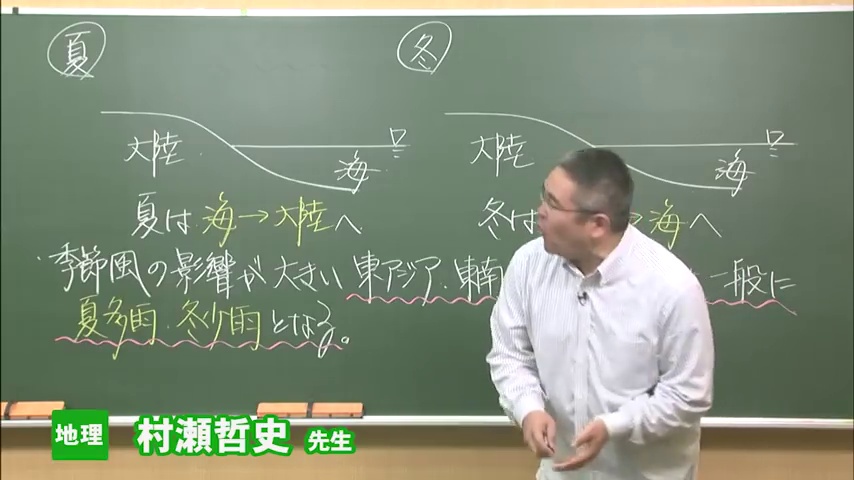 夏
冬
大陸
海
大陸
海
夏は 海→大陸へ
冬は →海へ
・季節風の影響が大きい 東アジア・東南 一般に
夏多雨・冬少雨となる。
地理 村瀬哲史 先生